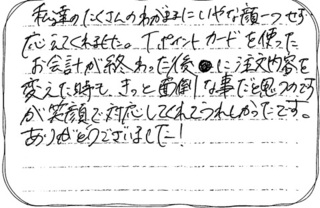 私達のたくさんのわがままにいやな顔一つせず
応えてくれました。Tポイントカードを使った
お会計が終わった後に注文内容を
変えた時も、きっと面倒な事だと思うのです
が笑顔で対応してくれてうれしかったです。
ありがとうございました！